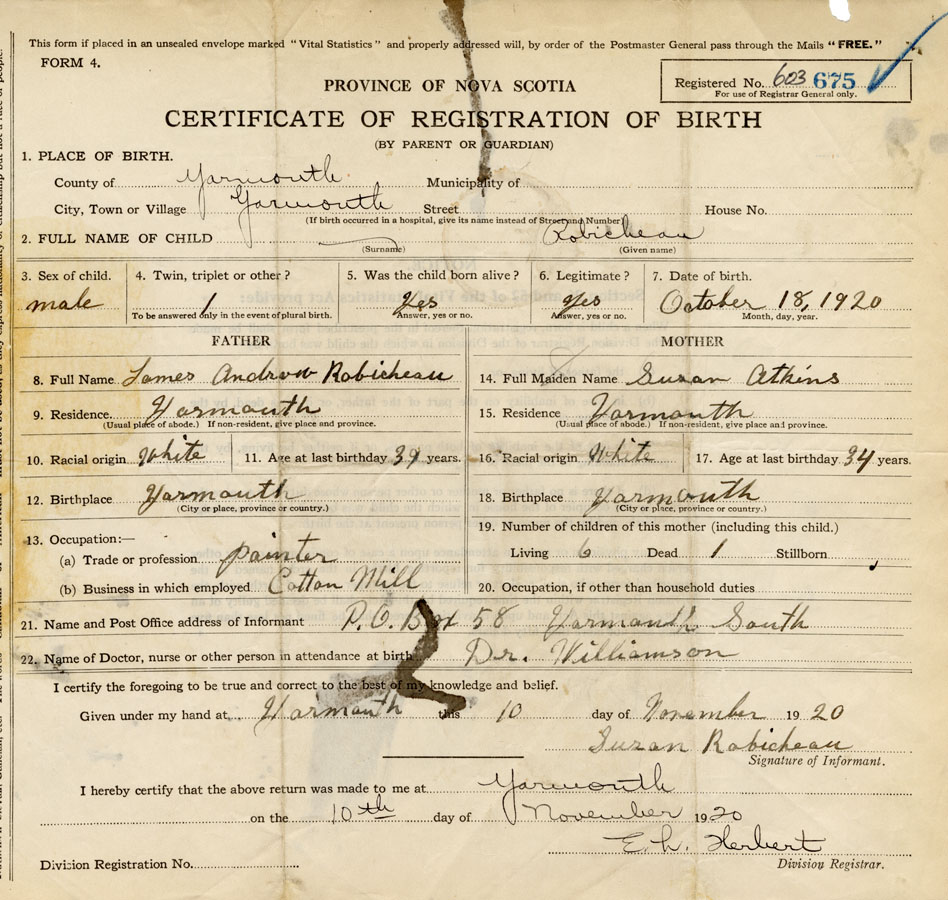 This form if placed in an unsealed envelope marked "Vital Statistics" and properly addressed will, by order of the Postmaster General pass through the Mails "FREE."
FORM 4.
Registered No. 603 675
For use of Registrar General only.
PROVINCE OF NOVA SCOTIA
CERTIFICATE OF REGISTRATION OF BIRTH
(BY PARENT OR GUARDIAN)
1. PLACE OF BIRTH.
County of Yarmouth Municipality of
City, Town or Village Yarmouth Street House No.
(If birth occurred in a hospital, give its name instead of Street and Number)
2. FULL NAME OF CHILD Robicheau
(Surname) (Given name)
3. Sex of child. 4. Twin, triplet or other? 5. Was the child born alive? 6. Legitimate? 7. Date of birth.
male 1 Yes yes October 18, 1920
To be answered only in the event of plural birth. Answer, yes or no. Answer, yes or no. Month, day, year.
FATHER MOTHER
8. Full Name James Andrew Robicheau 14. Full Maiden Name Suzan Atkins
9. Residence. Yarmouth 15. Residence Yarmouth
(Usual place of abode.) If non-resident, give place and province. (Usual place of abode.) If non-resident, give place and province.
10. Racial origin White 11. Age at last birthday years. 16. Racial origin White 17. Age at last birthday 34 years.
12. Birthplace Yarmouth 18. Birthplace Yarmouth
(City or place, province or country.) (City or place, province or country.)
13. Occupation:— 19. Number of children of this mother (including this child.)
(a) Trade or profession painter Living 6 Dead 1 Stillborn
(b) Business in which employed Cotton Mill 20. Occupation, if other than household duties
21. Name and Post Office address of Informant P.O. Box 58 Yarmouth South
22. Name of Doctor, nurse or other person in attendance at birth Dr. Williamson
I certify the foregoing to be true and correct to the best of my knowledge and belief.
Given under my hand at Yarmouth this 10 day of November 1920
Suzan Robicheau
Signature of Informant.
I hereby certify that the above return was made to me at Yarmouth
on the 10th day of November 1920
E. h. Herbert
Division Registration No. Division Registrar.